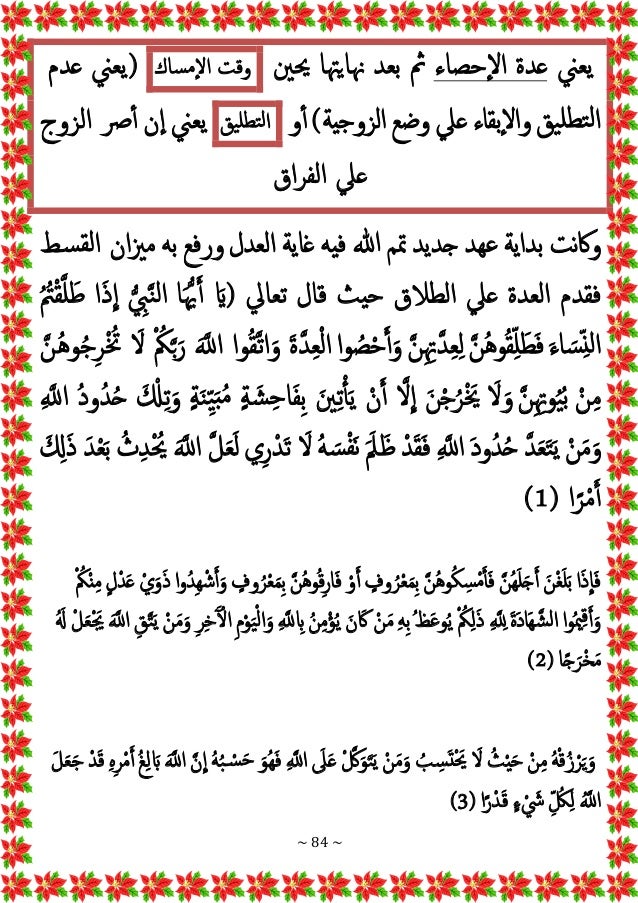 يعني عدة الإحصاء ثم بعد نهايتها يحين وقت الإمساك (يعني عدم
التطليق والإبقاء علي وضع الزوجية) أو التطليق يعني إن أصر الزوج
علي الفراق
وكانت بداية عهد جديد تمم الله فيه غاية العدل ورفع به ميزان القسط
فقدم العدة علي الطلاق حيث قال تعالي (يَا أَيُّهَا النَّبِيُّ إِذَا طَلَّقْتُمُ
النِّسَاءَ فَطَلِّقُوهُنَّ لِعِدَّتِهِنَّ وَأَحْصُوا الْعِدَّةَ وَاتَّقُوا اللَّهَ رَبَّكُمْ لَا تُخْرِجُوهُنَّ
مِنْ بُيُوتِهِنَّ وَلَا يَخْرُجْنَ إِلَّا أَنْ يَأْتِينَ بِفَاحِشَةٍ مُبَيِّنَةٍ وَتِلْكَ حُدُودُ اللَّهِ
وَمَنْ يَتَعَدَّ حُدُودَ اللَّهِ فَقَدْ ظَلَمَ نَفْسَهُ لَا تَدْرِي لَعَلَّ اللَّهَ يُحْدِثُ بَعْدَ ذَلِكَ
أَمْرًا (1)
فَإِذَا بَلَغْنَ أَجَلَهُنَّ فَأَمْسِكُوهُنَّ بِمَعْرُوفٍ أَوْ فَارِقُوهُنَّ بِمَعْرُوفٍ وَأَشْهِدُوا ذَوَيْ عَدْلٍ مِنْكُمْ
وَأَقِيمُوا الشَّهَادَةَ لِلَّهِ ذَلِكُمْ يُوعَظُ بِهِ مَنْ كَانَ يُؤْمِنُ بِاللَّهِ وَالْيَوْمِ الْآَخِرِ وَمَنْ يَتَّقِ اللَّهَ يَجْعَلْ لَهُ
مَخْرَجًا (2)
وَيَرْزُقْهُ مِنْ حَيْثُ لَا يَحْتَسِبُ وَمَنْ يَتَوَكَّلْ عَلَى اللَّهِ فَهُوَ حَسْبُهُ إِنَّ اللَّهَ بَالِغُ أَمْرِهِ قَدْ جَعَلَ
اللَّهُ لِكُلِّ شَيْءٍ قَدْرًا (3)
~ 84 ~